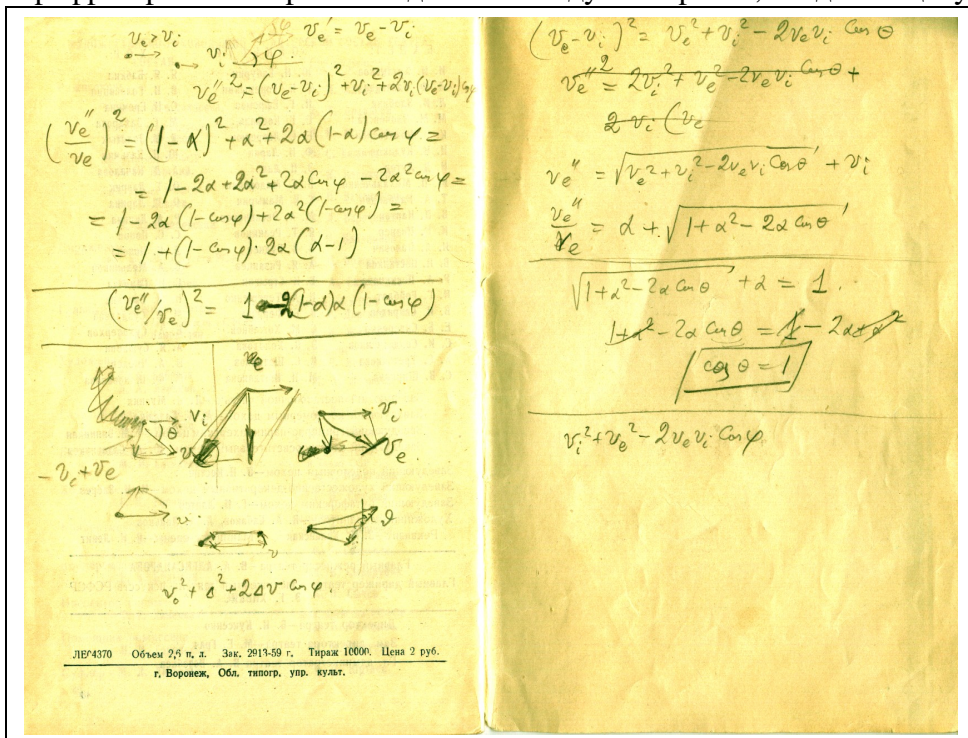 v_e > v_i
v_e' = v_e - v_i
v_i φ
v_e''² = (v_e - v_i)² + v_i² + 2v_i(v_e - v_i) cos φ
(v_e''/v_e)² = (1-α)² + α² + 2α(1-α) cos φ =
= 1 - 2α + 2α² + 2α cos φ - 2α² cos φ =
= 1 - 2α(1 - cos φ) + 2α²(1 - cos φ) =
= 1 + (1 - cos φ) · 2α(α - 1)
(v_e''/v_e)² = 1 - 2(1-α)α(1 - cos φ)
v_e
v_i
θ
v_i
v_e
- v_i + v_e
v
v_0² + Δ² + 2Δv cos φ.
ЛЕ04370 Объем 2,6 п. л. Зак. 2913-59 г. Тираж 10000. Цена 2 руб.
г. Воронеж, Обл. типогр. упр. культ.
(v_e - v_i)² = v_e² + v_i² - 2v_e v_i cos θ
v_e''² = 2v_i² + v_e² - 2v_e v_i cos θ +
2 v_i (v_e
v_e'' = √(v_e² + v_i² - 2v_e v_i cos θ) + v_i
v_e''/v_e = α + √(1 + α² - 2α cos θ)
√(1 + α² - 2α cos θ) + α = 1.
1 + α² - 2α cos θ = 1 - 2α + α²
cos θ = 1
v_i² + v_e² - 2v_e v_i cos φ